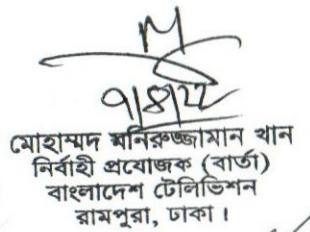 ৭/৪/২২
মোহাম্মদ মনিরুজ্জামান খান
নির্বাহী প্রযোজক (বার্তা)
বাংলাদেশ টেলিভিশন
রামপুরা, ঢাকা।